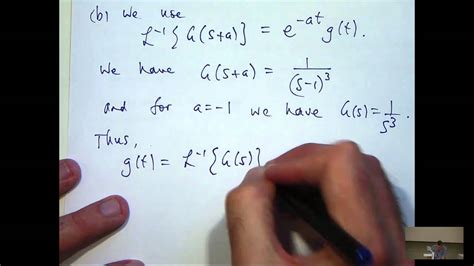 (b) We use
ℒ⁻¹{G(s+a)} = e^{-at} g(t).
We have G(s+a) = 1/(s-1)³
and for a=-1 we have G(s)=1/s³.
Thus,
g(t) = ℒ⁻¹{G(s)}